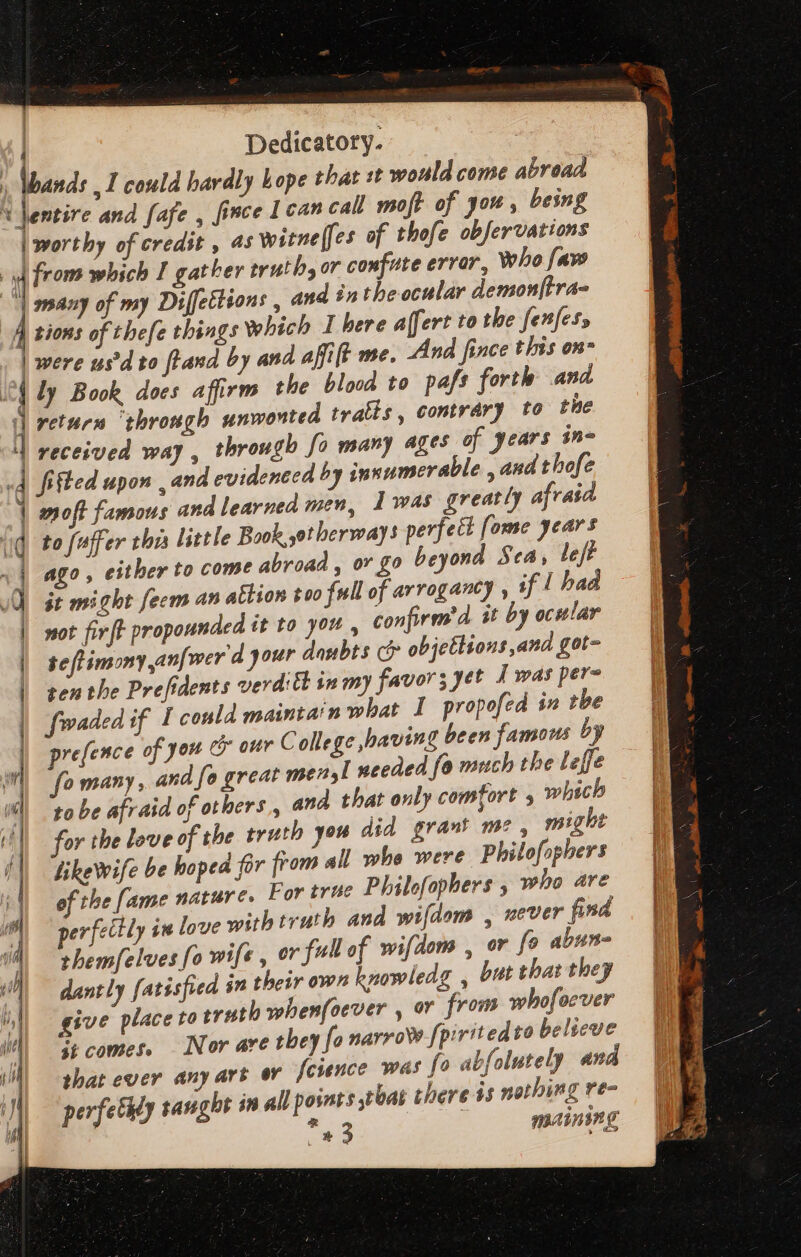 Dedicatory.
hands , I could hardly hope that it would come abroad
entire and ſafe , ſince I can call moſt of you , being
worthy of credit , as witneſſes of thoſe obſervations
from which I gather truth, or confute error, who ſaw
many of my Diſſections , and in the ocular demonſtra-
tions of theſe things which I here aſſert to the ſenſes,
were us'd to ſtand by and aſſiſt me. And ſince this on-
ly Book does affirm the blood to paſs forth and
return through unwonted tracts, contrary to the
received way , through ſo many ages of years in-
ſiſted upon , and evidenced by innumerable , and thoſe
moſt famous and learned men, I was greatly afraid
to ſuffer this little Book, otherways perfect ſome years
ago , either to come abroad , or go beyond Sea, leſt
it might ſeem an action too full of arrogancy , if I had
not firſt propounded it to you , confirm'd it by ocular
teſtimony, anſwer'd your doubts & objections, and got-
ten the Preſidents verdict in my favor; yet I was per-
ſwaded if I could maintain what I propoſed in the
preſence of you & our College, having been famous by
ſo many, and ſo great men, I needed ſo much the leſſe
to be afraid of others , and that only comfort , which
for the love of the truth you did grant me , might
likewiſe be hoped for from all who were Philoſophers
of the ſame nature. For true Philoſophers , who are
perfectly in love with truth and wiſdom , never find
themſelves ſo wiſe , or full of wiſdom , or ſo abun-
dantly ſatisfied in their own knowledg , but that they
give place to truth whenſoever , or from whoſoever
it comes. Nor are they ſo narrow ſpirited to believe
that ever any art or ſcience was ſo abſolutely and
perfectly taught in all points, that there is nothing re-
*3 maining